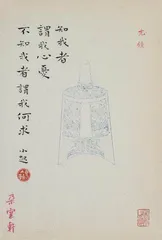 知我者
謂我心憂
不知我者謂我何求
朵雲軒